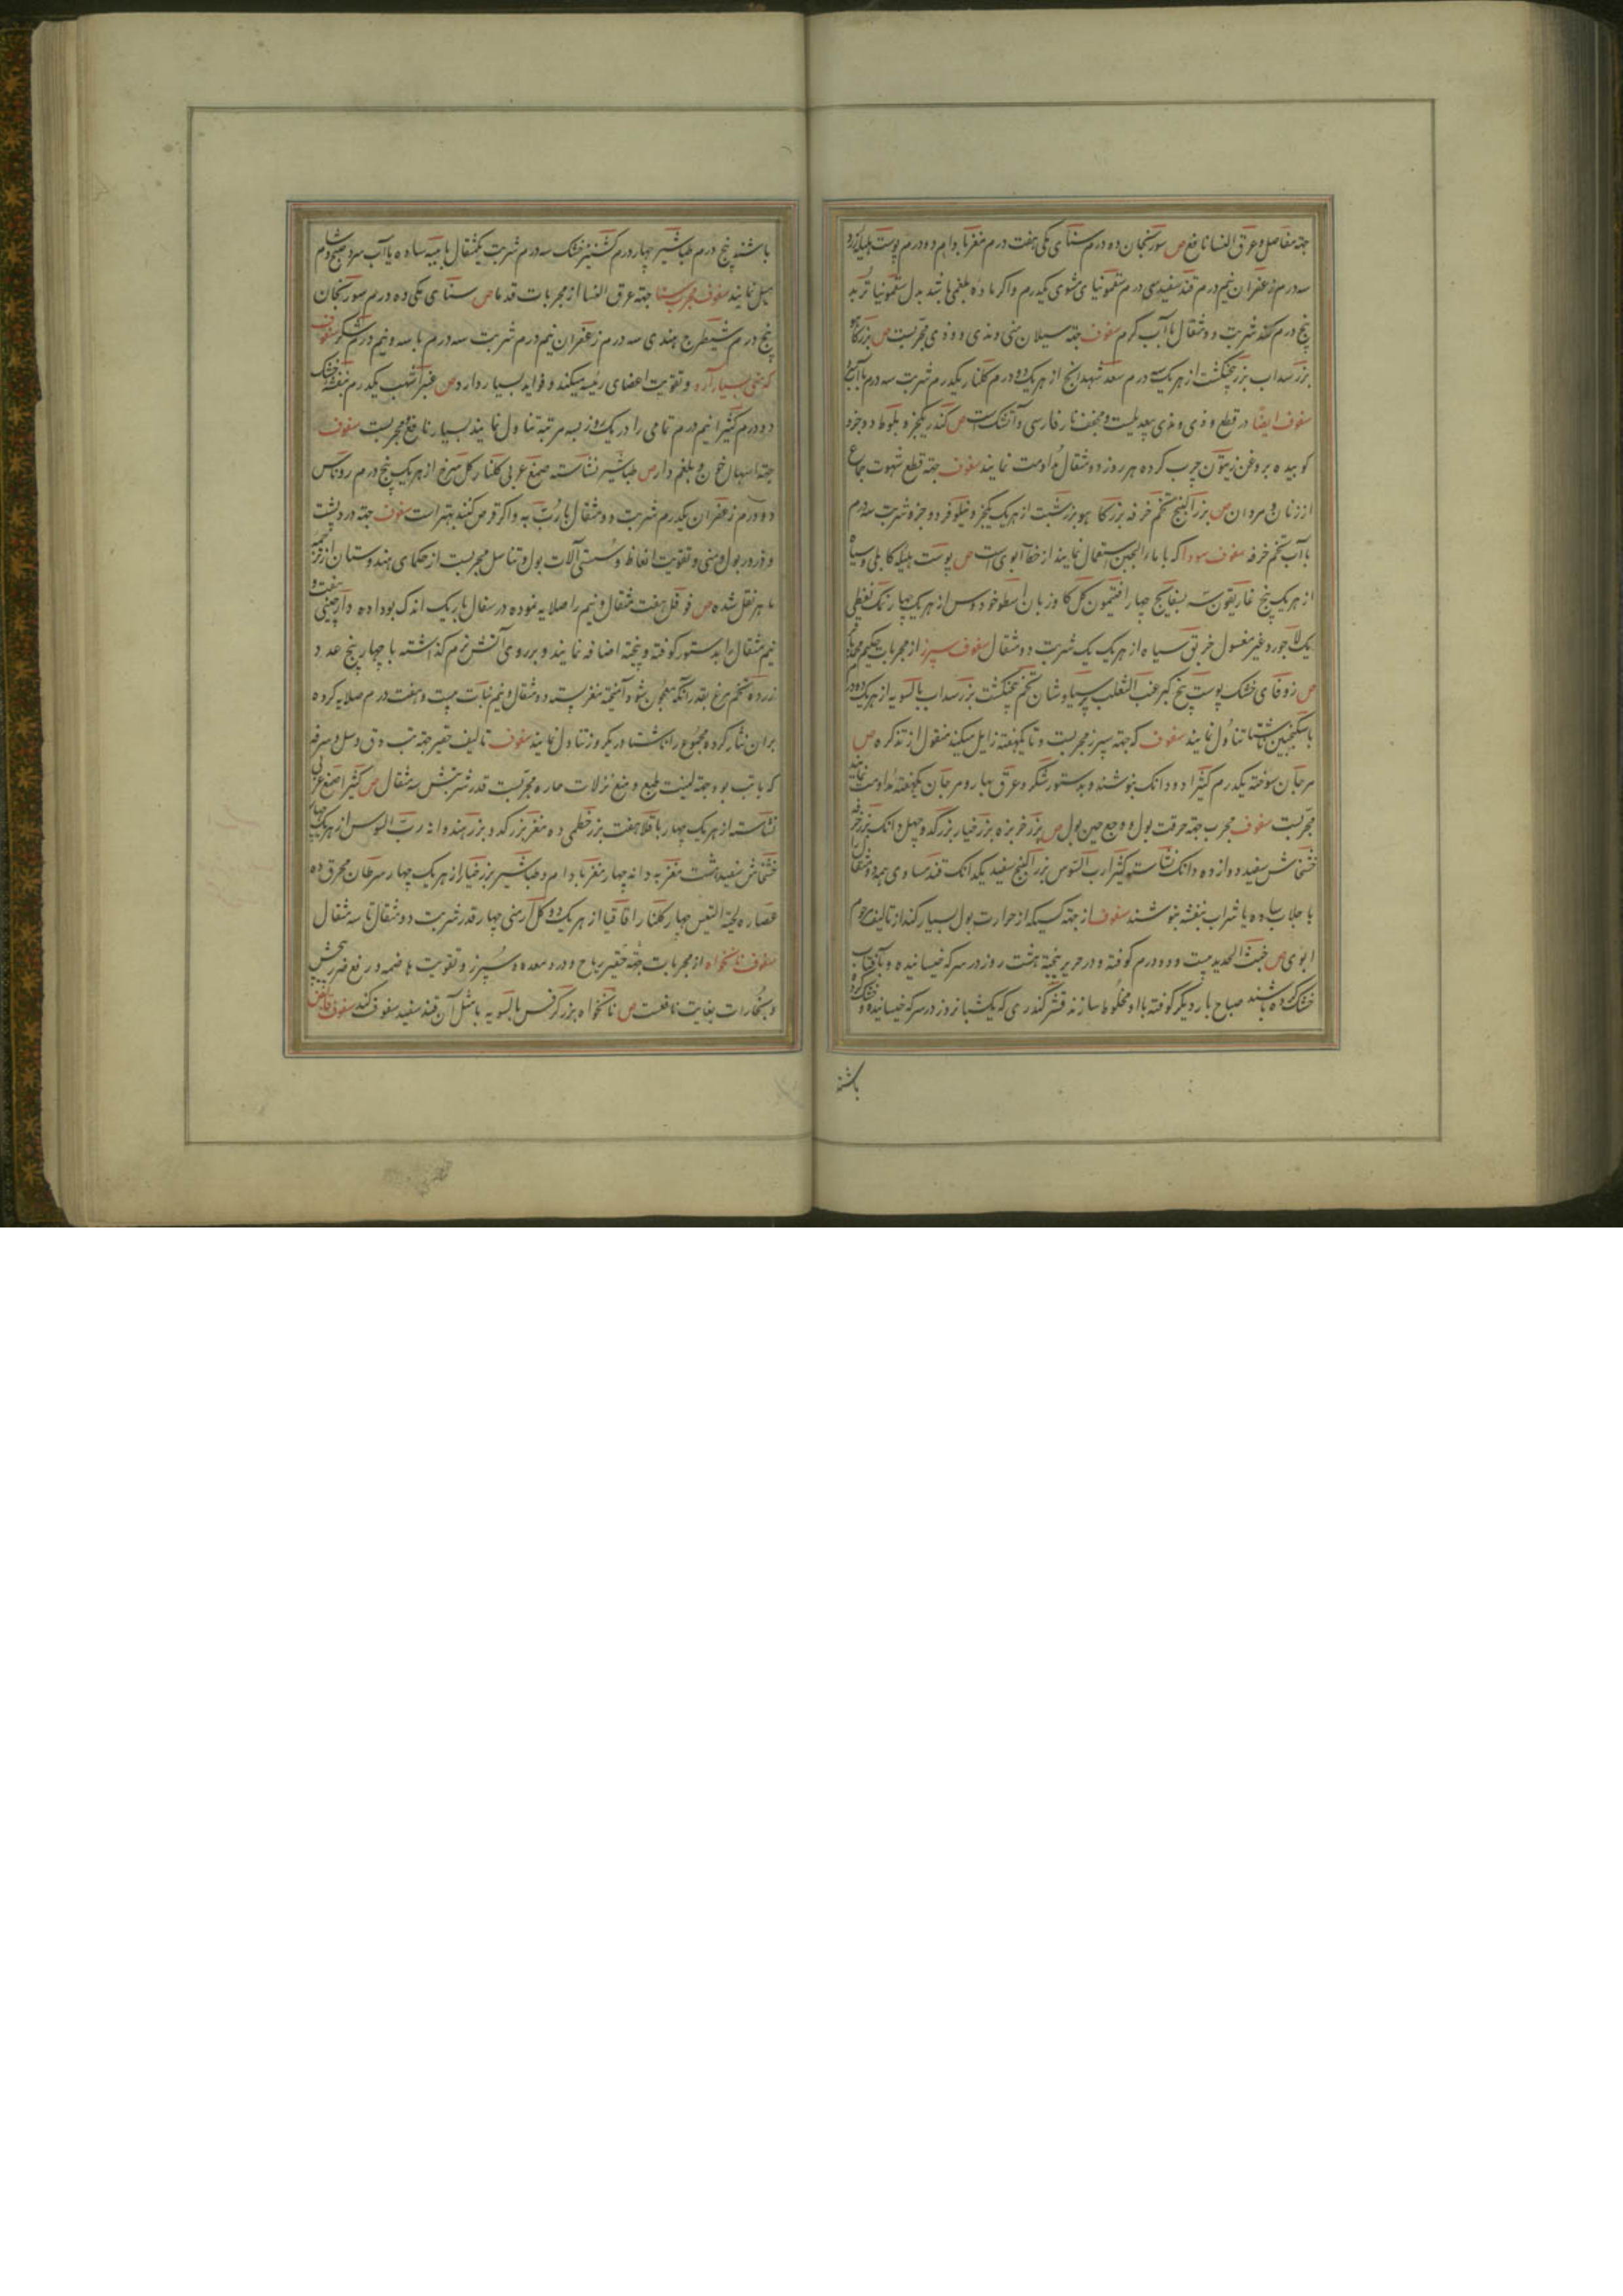 جهة مفاصل و عرق النسا نافع ص سورنجان ده درم سنای مکی هفت درم مغز بادام دو درم پوست هلیله زرد
سه درم زعفران نیم درم قند سفید سی درم سقمونیای مشوی یکدرم و اکر ماده بلغمی باشد بدل سقمونیا تربد
پنج درم کنند شربت دو مثقال با آب کرم سفوف جهة سیلان منی و مذی و وذی مجربست ص بزر کاهو
بزر سداب بزر پنجنکشت از هریک سه درم سعد شهدانج از هریک دو درم کلنار یکدرم شربت سه درم با آب یخ
سفوف ایضا در قطع وذی و مذی بیعدیلست و مجفف نار فارسی و آتشک است ص کندر یکجزو بلوط دو جزو
کوبیده بروغن زیتون چرب کرده هر روز دو مثقال مداومت نمایند سفوف جهة قطع شهوت جماع
از زنان و مردان ص بزر البنج تخم خرفه بزر کاهو بزر شبت از هریک یکجزو نیلوفر دو جزو شربت سه درم
با آب تخم خرفه سفوف سودا که با ماء الجبن استعمال نمایند از خط آبوی است ص پوست هلیله کابلی و سیاه
از هریک پنج غاریقون سه بسفایج چهار افتیمون کل کاوزبان اسطوخودوس از هریک چهار نمک نفطی
یک لاجورد غیر مغسول خربق سیاه از هریک یک شربت دو مثقال سفوف سپرز از مجربات حکیم محمد باقر
ص زوفای خشک پوست بیخ کبر عنب الثعلب پرسیاوشان تخم پنجنکشت بزر سداب بالسویه از هریک دو درم
با سکنجبین ناشتا تناول نمایند سفوف که جهة سپرز مجربست و تا یکهفته زایل میکند منقول از تذکره ص
مرجان سوخته یکدرم کثیرا دو دانک بنوشند و بدستور شکر و عرق بهار و مرجان یکهفته مداومت نمایند
مجربست سفوف مجرب جهة حرقت بول و وجع حین بول ص بزر خربزه بزر خیار بزر کدو چهل دانک بزر خرفه
خشخاش سفید دوازده دانک نشاسته کثیرا رب السوس بزر البنج سفید یکدانک قند مساوی همه دو مثقال را
با جلاب ساده یا شراب بنفشه بنوشند سفوف از جهة کسیکه از حرارت بول بسیار کند از تالیف مرحوم
ابوی ص خبث الحدید بیست و دو درم کوفته و در حریر بیخته هشت روز در سرکه خیسانیده و بآفتاب
خشک کرده باشند صباح بار دیکر کوفته با او مخلوط سازند قشر کندری که یک شبانروز در سرکه خیسانیده و خشک کرده
باشند
باشند پنج درم طباشیر چهار درم کشنیز خشک سه درم شربت یکمثقال با میبه ساده یا آب سرد صبح و شام
میل نمایند سفوف مجرب سنا جهة عرق النسا از مجربات قدما ص سنای مکی ده درم سورنجان
پنج درم شیطرج هندی سه درم زعفران نیم درم شربت سه درم با سه و نیم درم شکر سفوف
که منی بسیار آرد و تقویت اعضای رئیسه میکند و فواید بسیار دارد ص عنبر اشهب یکدرم بنفشه خشک
دو درم کثیرا نیم درم تمامی را در یک روز بسه مرتبه تناول نمایند بسیار نافع مجربست سفوف
جهة اسهال خون و بلغم دار ص طباشیر نشاسته صمغ عربی کلنار کل سرخ از هریک پنج درم روناس
دو درم زعفران یکدرم شربت دو مثقال با رب به و اکر قرص کنند بهتر است سفوف جهة درد پشت
و ذرور بول و منی و تقویت انعاظ و سستی آلات بول و تناسل مجربست از حکمای هندوستان از ترجمه
ماهر نقل شده ص فوفل هفت مثقال و نیم را صلایه نموده در سفال باریک اندک بو داده و دارچینی هفت و
نیم مثقال را بدستور کوفته و پخته اضافه نمایند و بر روی آتش نرم کذاشته با چهار پنج عدد
زرده تخم مرغ بقدر آنکه معجون شود آمیخته مغز پسته دو مثقال و نیم نبات بیست و هفت درم صلایه کرده
بر آن نثار کرده مجموع را ناشتا در یکروز تناول نمایند سفوف تالیف حقیر جهة تب دق و سل و سرفه
که با تب بود و جهة لینت طبع و منع نزلات حاره مجربست قدر شربتش سه مثقال ص کثیرا صمغ عربی
نشاسته از هریک چهار باقلا هفت بزر خطمی ده مغز بزر کدو بزر هندوانه رب السوس از هریک چهار
خشخاش سفید هشت مغز به دانه چهار مغز بادام و طباشیر بزر خیار از هریک چهار سرطان محرق ده
عصاره لحیة التیس چهار کلنار اقاقیا از هریک دو کل ارمنی چهار قدر شربت دو مثقال تا سه مثقال
سفوف نانخواه از مجربات جهة حقیر ریاح و درد معده و سپرز و تقویت هاضمه و رفع ضرر
و بخارات بغایت نافعست ص نانخواه بزر کرفس بالسویه با مثل آن قند سفید سفوف کنند سفوف قابض